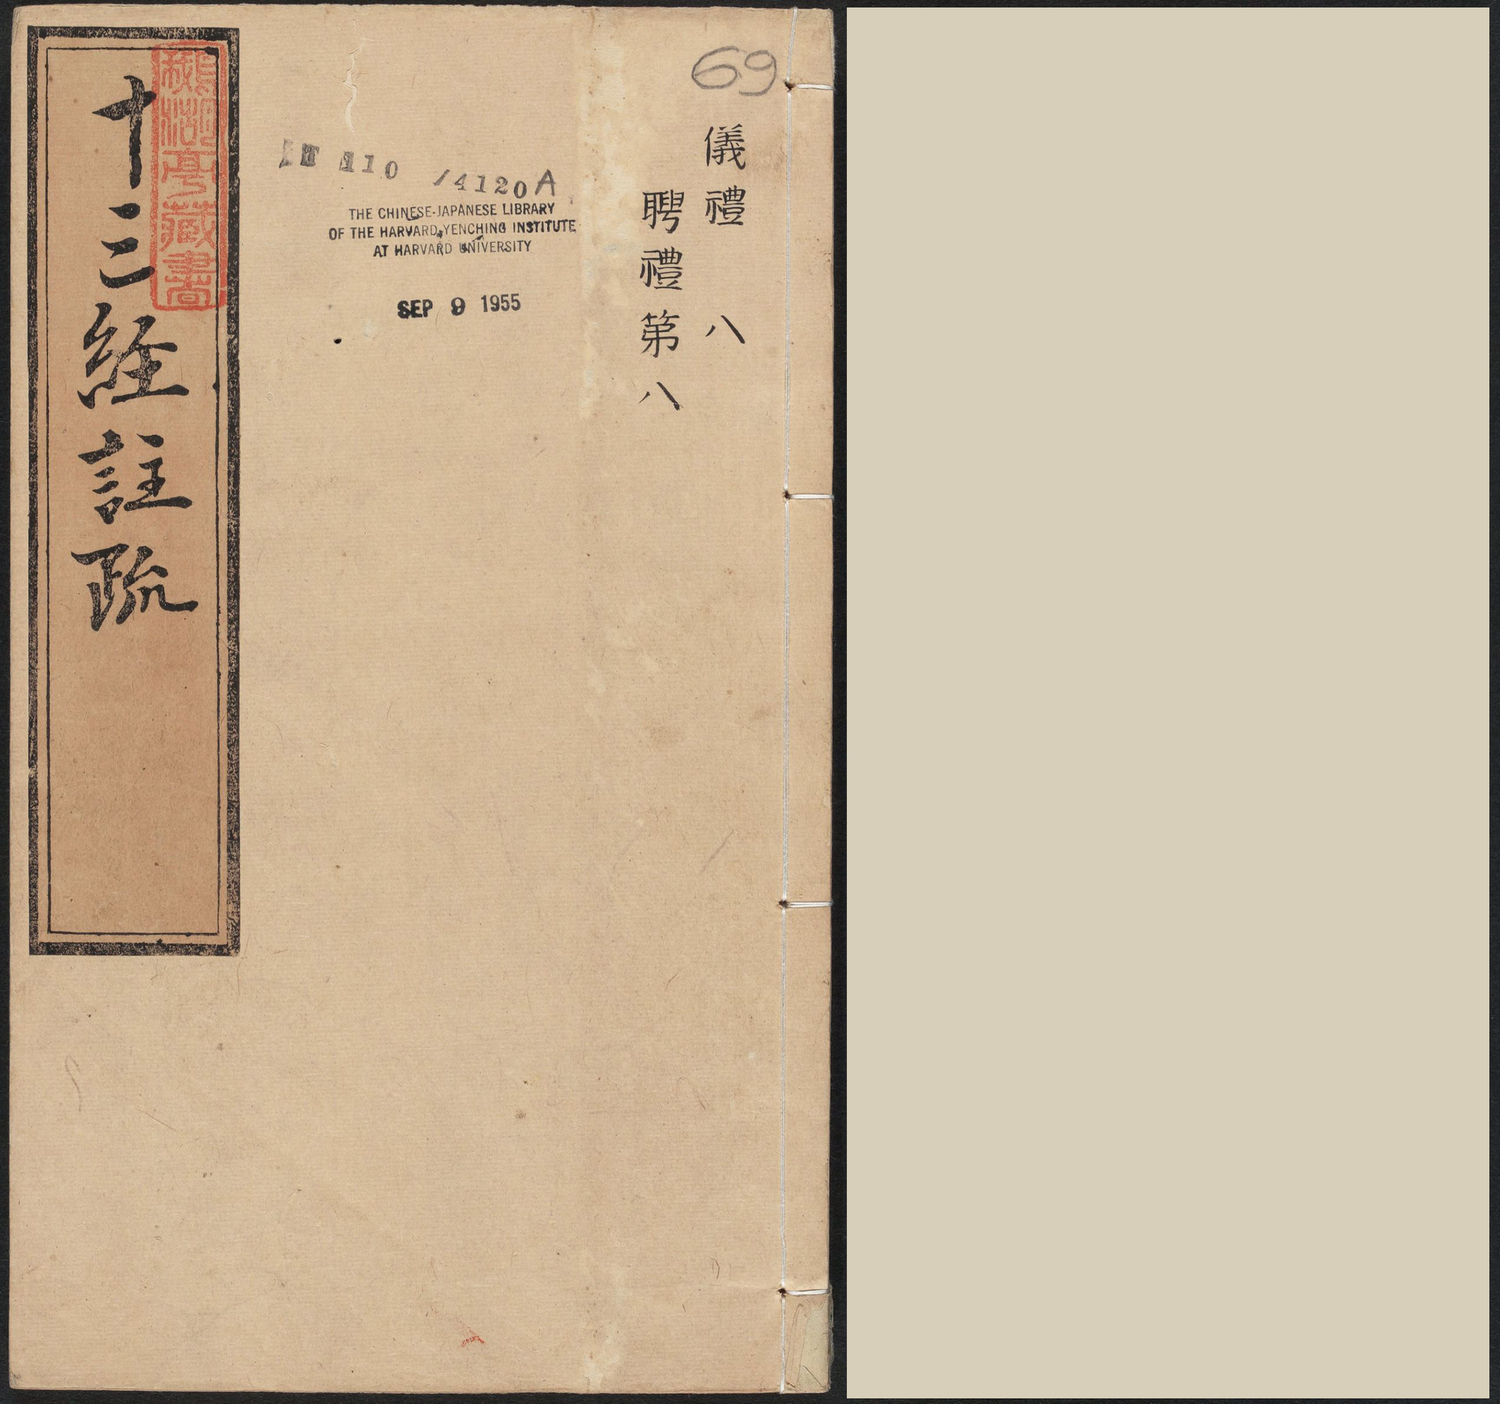 69
儀禮 八
聘禮第八
110 /4120A
THE CHINESE-JAPANESE LIBRARY
OF THE HARVARD-YENCHING INSTITUTE
AT HARVARD UNIVERSITY
SEP 9 1955
十三経註疏
亭藏書